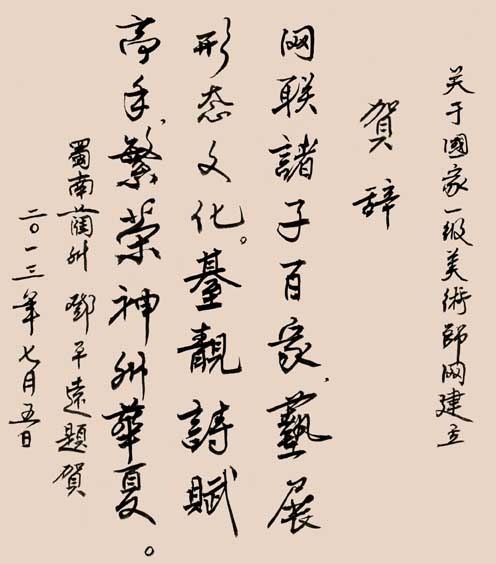 关于國家一级美術師网建立
賀辭
网联諸子百家，藝展
形态文化。臺靚詩賦
高手，繁荣神州華夏。
蜀南蘭州 鄧平遠題賀
二〇一三年七月五日